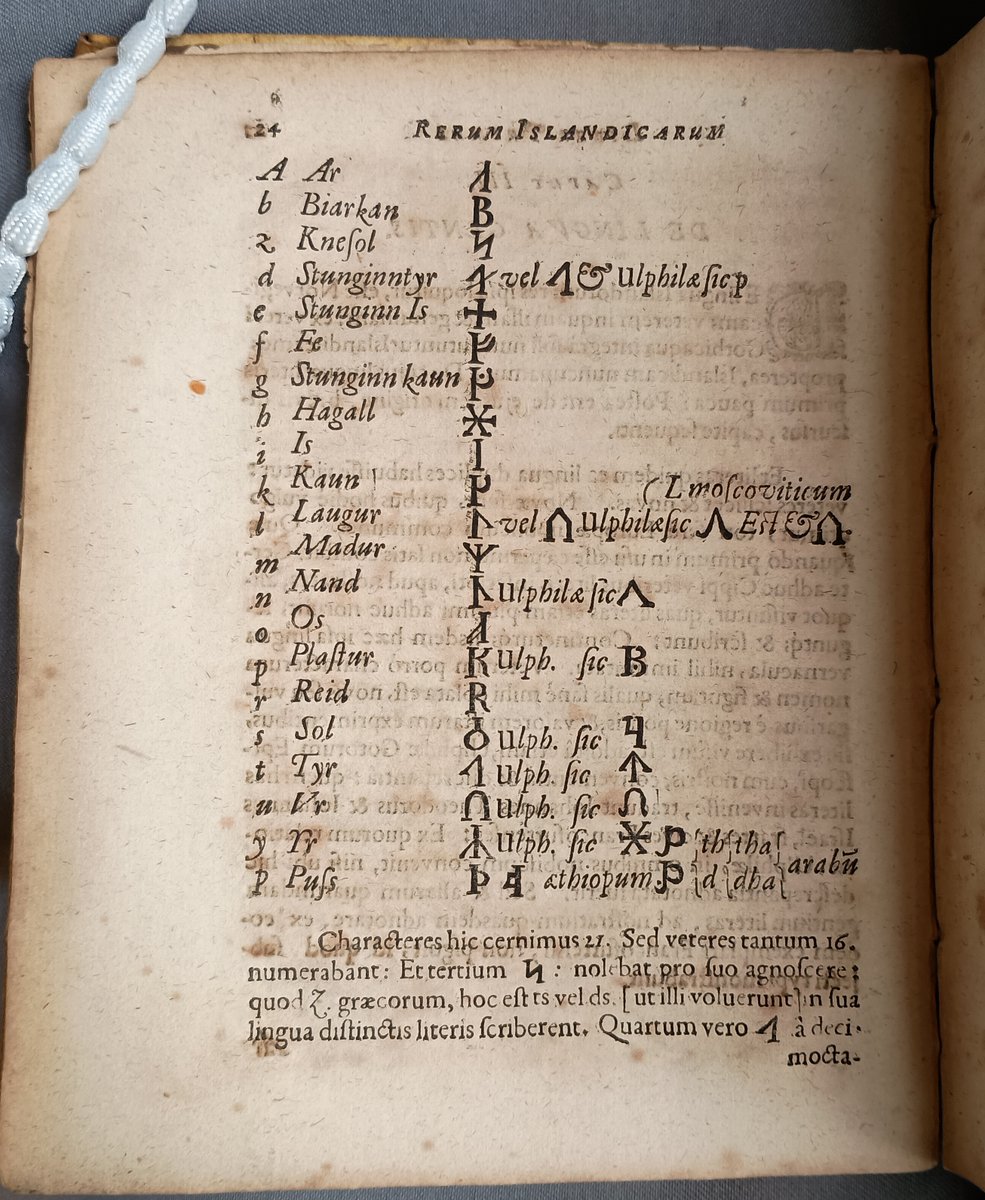 24 RERUM ISLANDICARUM
A Ar ᛆ
b Biarkan B
z Kneſol ᛋ
d Stunginntyr vel & Ulphilæ ſic p
e Stunginn Is ᛂ
f Fe ᚠ
g Stunginn kaun ᚵ
h Hagall ᚼ
i Is I
k Kaun ᚴ (L moſcoviticum
l Laugur ᛚ vel ᑎ Ulphilæ ſic Λ Eſt & ᑎ
m Madur ᛘ
n Nand Ulphilæ ſic Λ
o Os
p Plaſtur K Ulph. ſic B
r Reid R
s Sol Ulph. ſic
t Tyr Ulph. ſic ᛏ
u Vr ᑎ Ulph. ſic ᑎ
y Yr Ulph. ſic ᚼ th tha
þ Puſs Þ æthiopum d dha arabū
Characteres hic cernimus 21. Sed veteres tantum 16.
numerabant: Et tertium ᛋ : nolebat pro ſuo agnoſcere:
quod Z. græcorum, hoc eſt ts vel ds. [ut illi voluerunt] in ſua
lingua diſtinctis literis ſcriberent. Quartum vero à deci-
mocta-